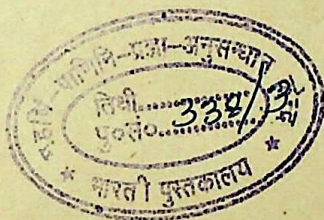 महर्षि-पाणिनि-प्रज्ञा-अनुसन्धान
तिथी..............
पु०सं०... 338/3
* भारती पुस्तकालय *